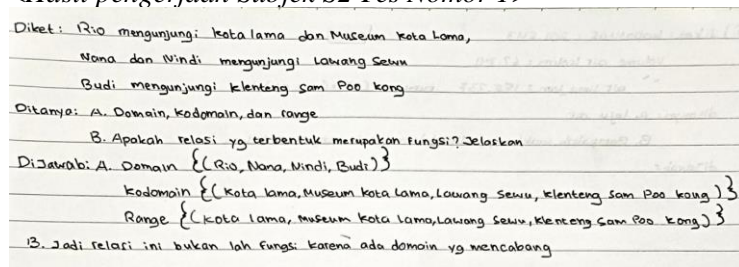 Hasil pengerjaan Subjek S2 Tes Nomor 19
Diket: Rio mengunjungi kota lama dan Museum kota Lama,
Nana dan Nindi mengunjungi Lawang Sewu
Budi mengunjungi klenteng Sam Poo kong
Ditanya: A. Domain, kodomain, dan range
B. Apakah relasi yg terbentuk merupakan fungsi? Jelaskan
DiJawab: A. Domain {(Rio, Nana, Nindi, Budi)}
kodomain {(Kota lama, Museum kota Lama, Lawang Sewu, klenteng Sam Poo kong)}
Range {(kota lama, museum kota lama, Lawang Sewu, klenteng Sam Poo kong)}
B. Jadi relasi ini bukan lah fungsi karena ada domain yg mencabang